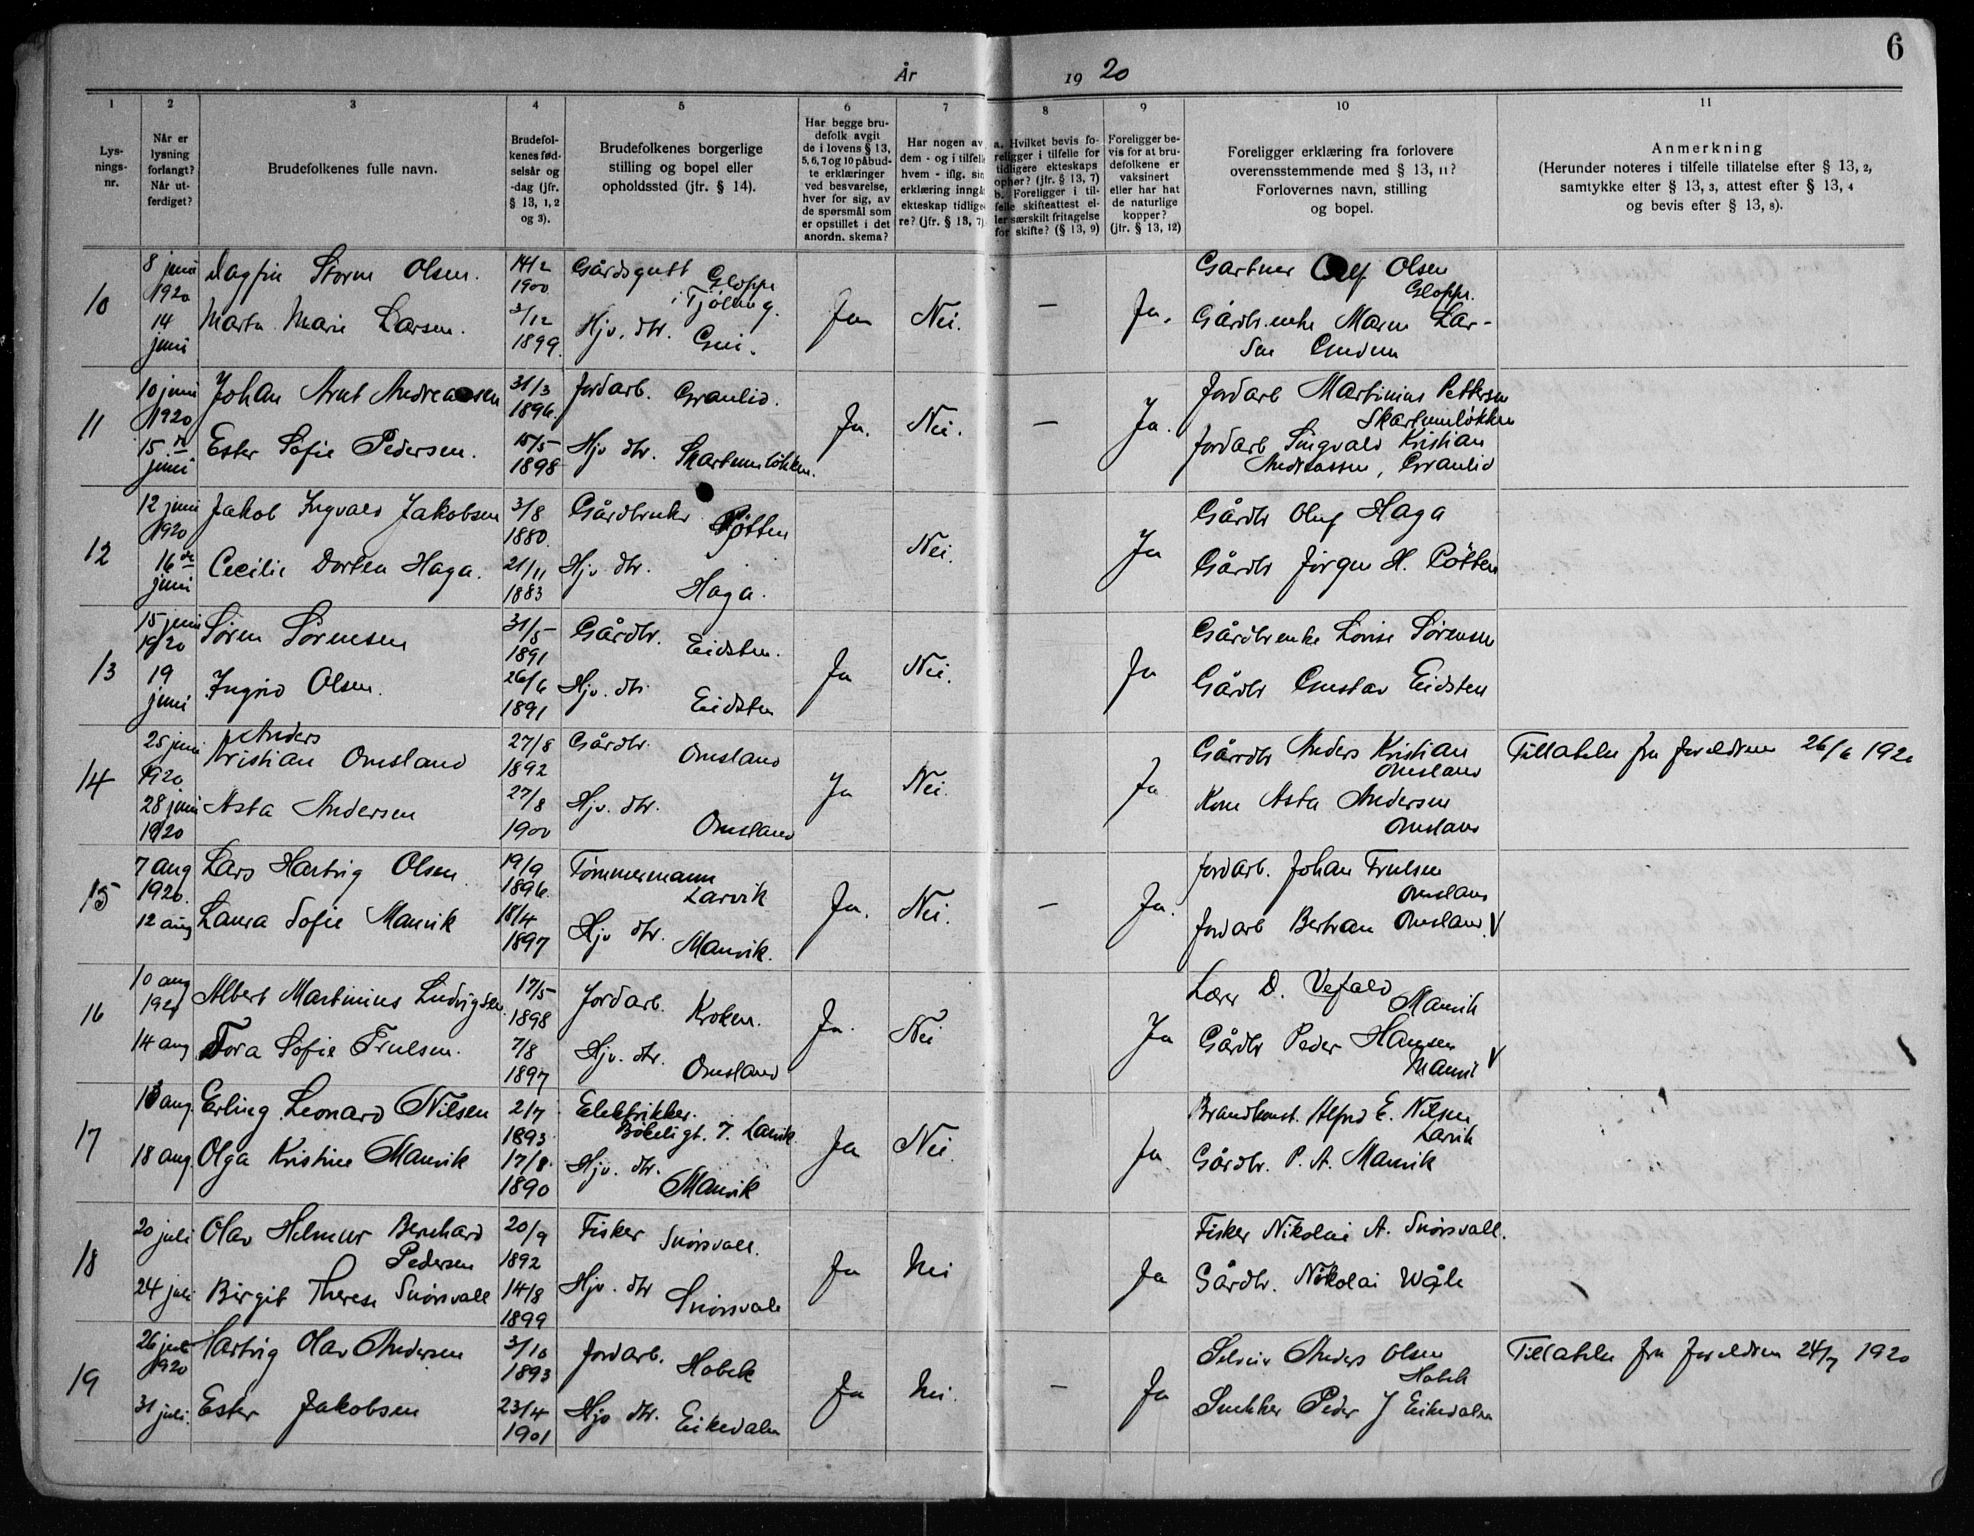 6
År 1920
1 2 3 4 5 6 7 8 9 10 11
Lysningsnr.
Når er lysning forlangt? Når utferdiget?
Brudefolkenes fulle navn.
Brudefolkenes fødselsår og -dag (jfr. § 13, 1, 2 og 3).
Brudefolkenes borgerlige stilling og bopel eller opholdssted (jfr. § 14).
Har begge brudefolk avgit de i lovens § 13, 5, 6, 7 og 10 påbudte erklæringer ved besvarelse, hver for sig, av de spørsmål som er opstillet i det anordn. skema?
Har nogen av dem - og i tilfelle hvem - iflg. sin erklæring inngått ekteskap tidligere? (jfr. § 13, 7)
a. Hvilket bevis foreligger i tilfelle for tidligere ekteskaps ophør? (jfr. § 13, 7)
b. Foreligger i tilfelle skifteattest eller særskilt fritagelse for skifte? (§ 13, 9)
Foreligger bevis for at brudefolkene er vaksinert eller har hat de naturlige kopper? (jfr. § 13, 12)
Foreligger erklæring fra forlovere overensstemmende med § 13, 11? Forlovernes navn, stilling og bopel.
Anmerkning
(Herunder noteres i tilfelle tillatelse efter § 13, 2, samtykke efter § 13, 3, attest efter § 13, 4 og bevis efter § 13, 8).
10
8 juni 1920
14 juni
Dagfin Storm Olsen. 14/2 1900 Gårdsgutt Gloppe i Tjøling.
Marta Marie Larsen. 3/12 1899. Hjv. dtr.
Ja Nei. — Ja.
Gartner Olsen Gloppe.
Gårdbr.enke Maren Larsen
11
10 juni 1920
15 de juni
Johan Arnt Andreassen 31/3 1896. Jordarb. Granlid.
Ester Sofie Pedersen. 15/5 1898 Hjv dtr. Skartumløkken.
Ja. Nei. — Ja.
Jordarb Martinius Pettersen Skartumløkken
Jordarb Singvald Kristian Andreassen, Granlid
12
12 juni 1920
16 de juni
Jakob Ingvald Jakobsen 3/8 1880. Gårdbruker Pøtten
Cecilie Dortea Haga. 21/11 1883 Hjv dtr. Haga.
Nei. Ja
Gårdbr Oluf Haga
Gårdbr Jørgen H. Pøtten
13
15 juni 1920
19 juni
Søren Sørensen 31/5 1891 Gårdbr. Eidsten.
Ingrid Olsen. 26/6 1891 Hjv. dtr Eidsten
Ja Nei. Ja
Gårdbrenke Lovise Sørensen
Gårdbr Gustav Eidsten
14
25 juni 1920
28 juni 1920
Anders
Kristian Omsland 27/8 1892 Gårdbr. Omsland
Asta Andersen 27/8 1900 Hjv. dtr. Omsland
Ja Nei. Ja
Gårdbr Anders Kristian Omsland
Kone Asta Andersen Omsland
Tillatelse fra foreldrene 26/6 1920
15
7 aug 1920.
12 aug
Lars Hartvig Olsen. 19/9 1896. Tømmermann Larvik
Laura Sofie Manvik 18/4 1897 Hjv dtr. Manvik.
Ja. Nei. — Ja.
Jordarb. Johan Trulsen Omsland
Jordarb Bertran Omsland. V
16
10 aug 1920
14 aug
Albert Martinius Ludvigsen. 17/5 1898 Jordarb. Kroken.
Tora Sofie Trulsen. 7/8 1897 Hjv. dtr. Omsland
Ja. Nei Ja
Lærer D. Vefald Manvik
Gårdbr Peder Hansen Manvi V
17
18 aug.
Erling Leonard Nilsen 2/7 1893 Elektrikker. Bøkeligt. 7. Larvik.
Olga Kristine Manvik 17/8. 1890 Hjv. dtr. Manvik
Ja Nei. Ja
Brandkonst. Alfred E. Nilsen Larvik
Gårdbr. P. A. Manvik
18
20 juli
24 juli
Olav Helmer Bernhard Pedersen 20/9 1892 Fisker Snørsvall.
Birgit Therese Snørsvall 14/8 1899 Hjv. dtr Snørsvall
Ja Nei Ja
Fisker Nikolai A. Snørsvall.
Gårdbr. Nikolai Wåle
19
26 juli 1920
31 juli.
Hartvig Olav Andersen 3/10 1893 Jordarb. Hobek
Ester Jakobsen 23/4 1901 Hjv dtr. Eikedalen
Ja Nei. — Ja
Anders Olsen Hobek
Snekker Peder J Eikedalen
Tillatelse fra foreldrene 24/7 1920